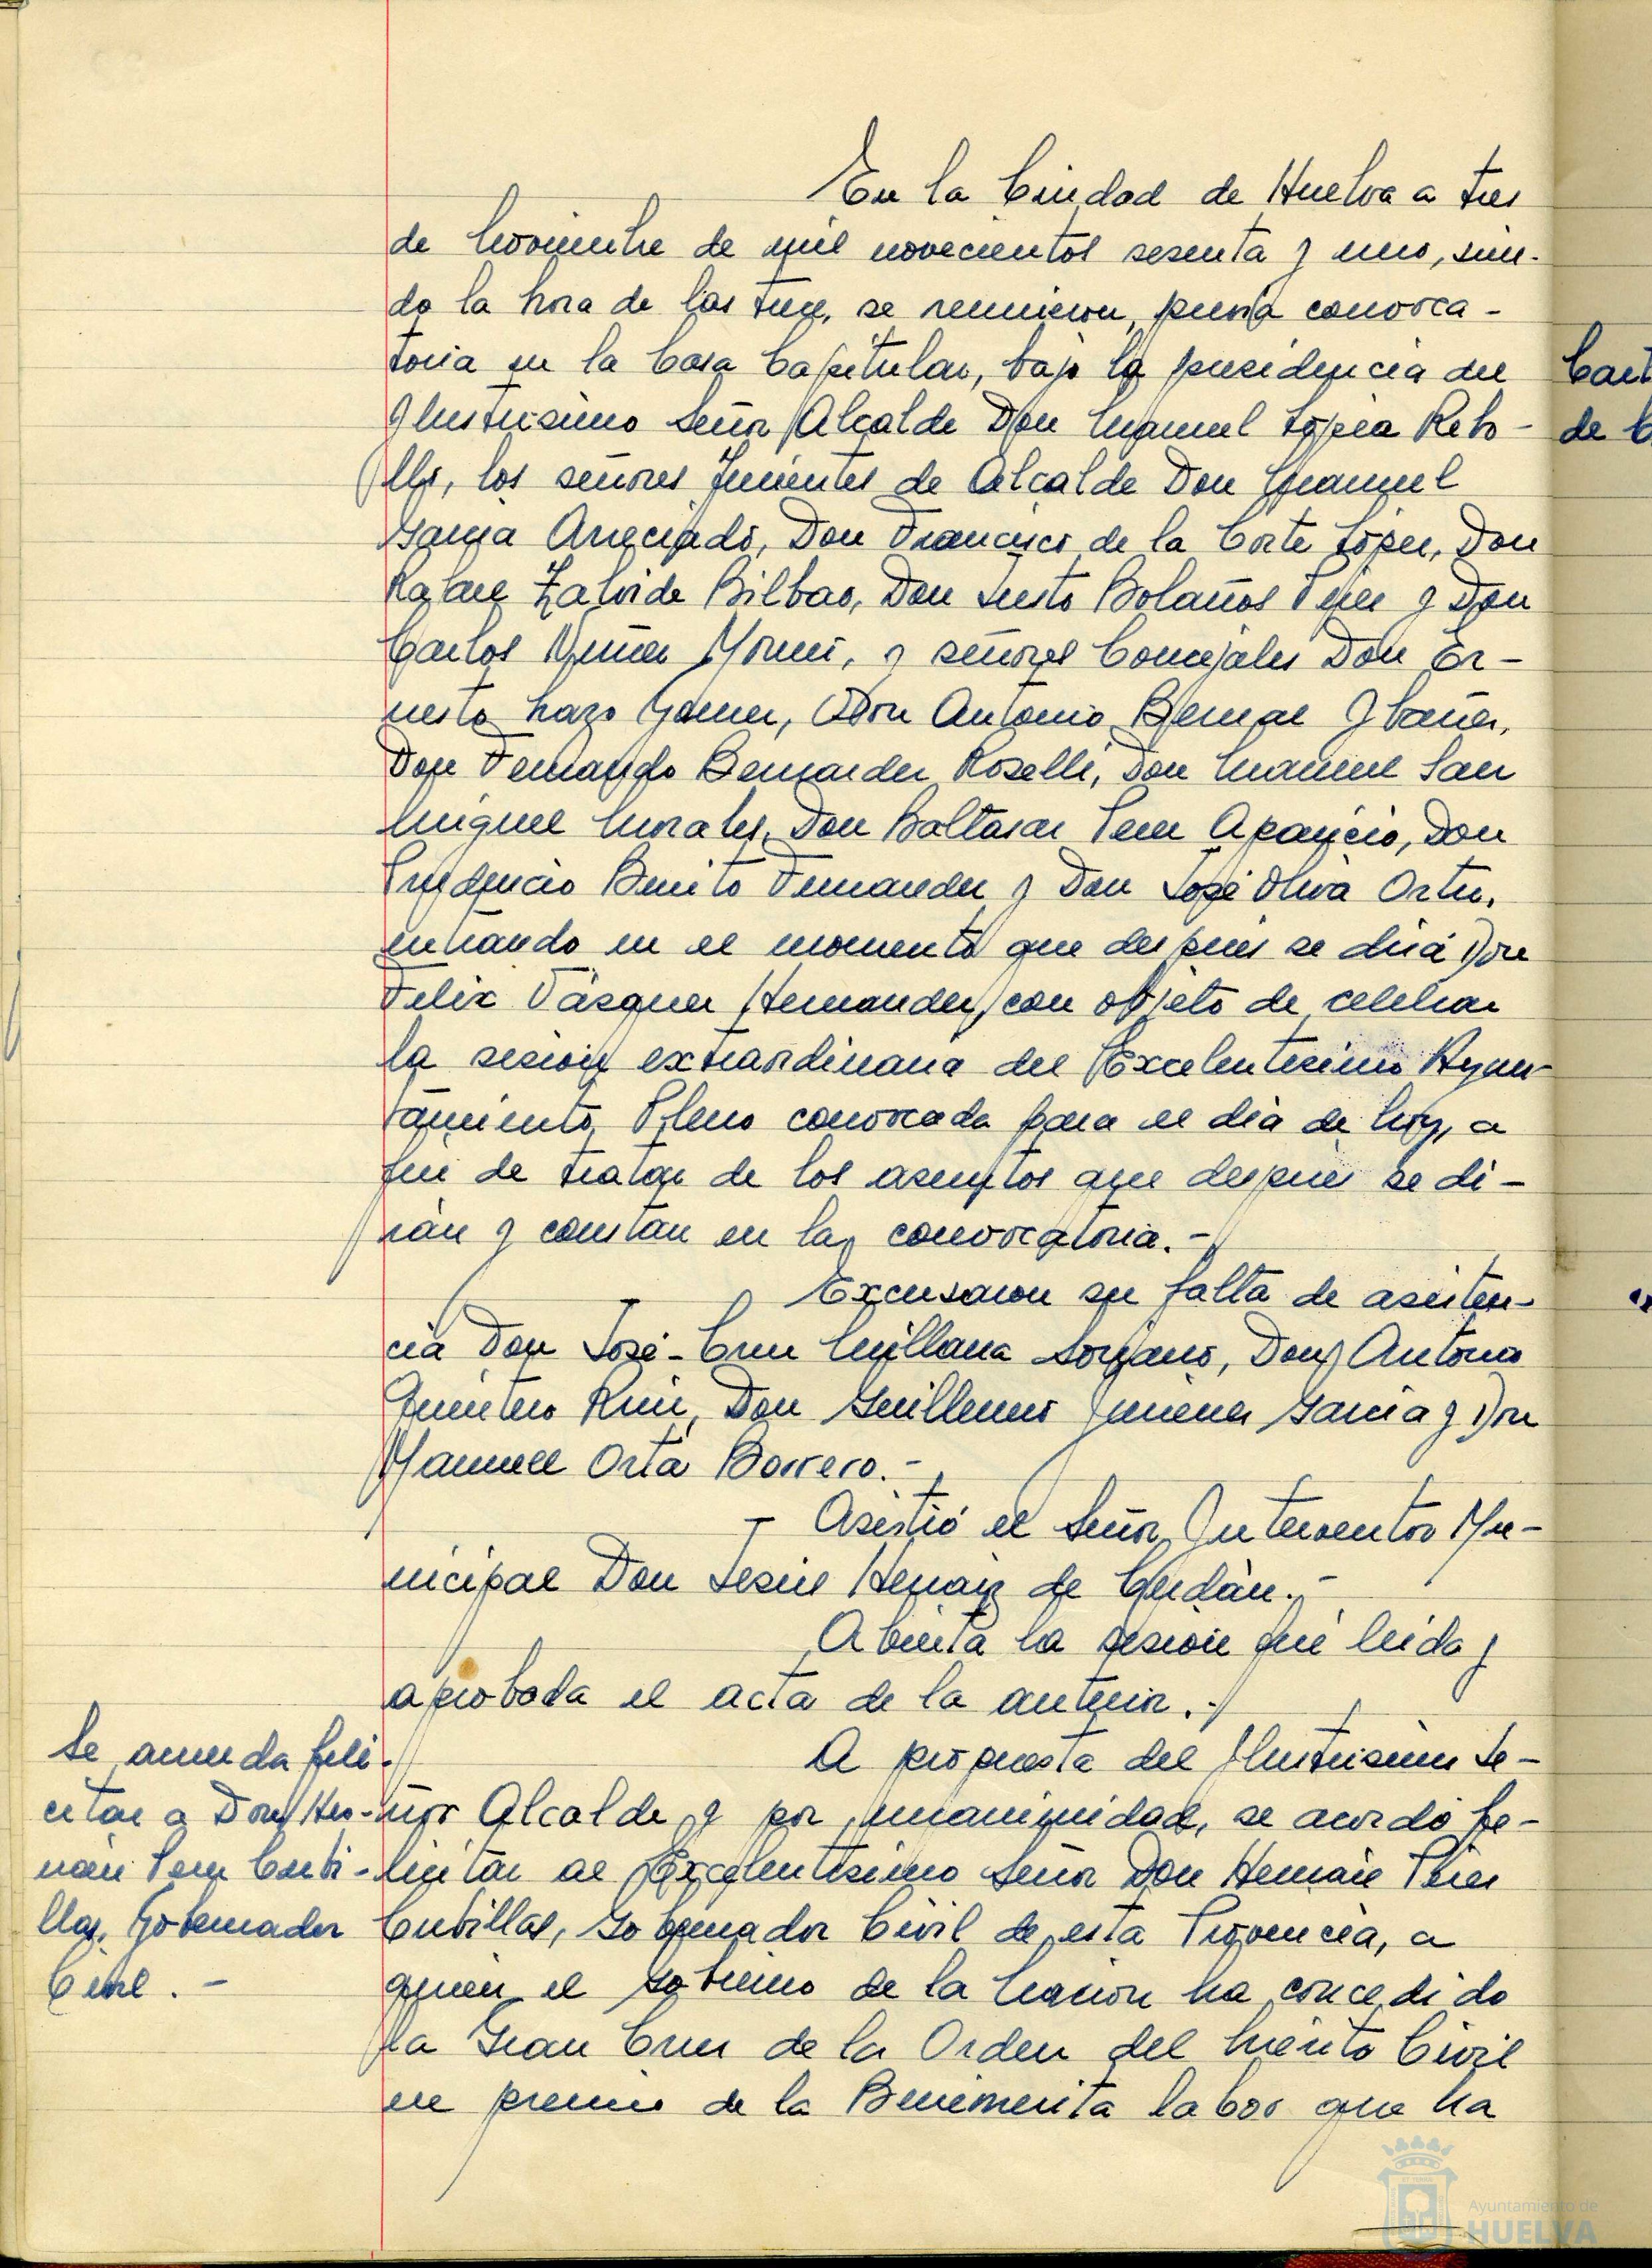 En la Ciudad de Huelva a tres
de Noviembre de mil novecientos sesenta y uno, sien-
do la hora de las trece, se reunieron, previa convoca-
toria en la Casa Capitular, bajo la presidencia del
Ilustrisimo Señor Alcalde Don Manuel López Rebo-
llo, los señores Tenientes de Alcalde Don Manuel
Garcia Arreciado, Don Francisco de la Corte López, Don
Rafael Zalvide Bilbao, Don Justo Bolaños Pérez y Don
Carlos Nuñez Moreni, y señores Concejales Don Er-
nesto Lazo Gomez, Don Antonio Bernal Ibañez,
Don Fernando Bernardez Roselli, Don Manuel San
Miguel Morales, Don Baltasar Perez Aparicio, Don
Prudencio Benito Fernandez y Don José Oliva Ortiz,
entrando en el momento que despues se dirá Don
Felix Vásquez Hernandez, con objeto de celebrar
la sesión extraordinaria del Excelentisimo Ayun-
tamiento Pleno convocada para el día de hoy, a
fin de tratar de los asuntos que despues se di-
rán y constan en la convocatoria.-
- Excusaron su falta de asisten-
cia Don José-Cruz Millana Soriano, Don Antonio
Quintero Ruiz, Don Guillermo Jimenez Garcia y Don
Manuel Orta Borrero.-
- Asistió el Señor Interventor Mu-
nicipal Don Jesus Hernaiz de Guidán.-
Abierta la sesión fué leida y
aprobada el acta de la anterior.-
Se acuerda feli-
citar a Don Her-
nán Perez Cubi-
llas, Gobernador
Civil.-
A propuesta del Ilustrisimo Se-
ñor Alcalde y por unanimidad, se acordó fe-
licitar al Excelentisimo Señor Don Hernán Pérez
Cubillas, Gobernador Civil de esta Provincia, a
quien el Gobierno de la Nacion ha concedido
la Gran Cruz de la Orden del Mérito Civil
en premio de la Benemerita labor que ha
de
Ayuntamiento de
HUELVA